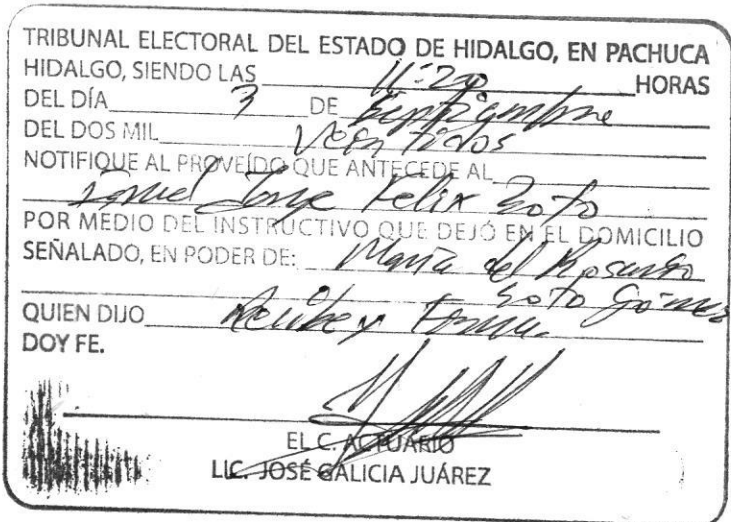 TRIBUNAL ELECTORAL DEL ESTADO DE HIDALGO, EN PACHUCA
HIDALGO, SIENDO LAS HORAS
DEL DÍA 3 DE Septiembre
DEL DOS MIL Veintidos
NOTIFIQUE AL PROVEÍDO QUE ANTECEDE AL
Jorge Felix Soto
POR MEDIO DEL INSTRUCTIVO QUE DEJÓ EN EL DOMICILIO
SEÑALADO, EN PODER DE: María del Rosario
Soto Gómez
QUIEN DIJO Recibe y Firma
DOY FE.
EL C. ACTUARIO
LIC. JOSÉ GALICIA JUÁREZ